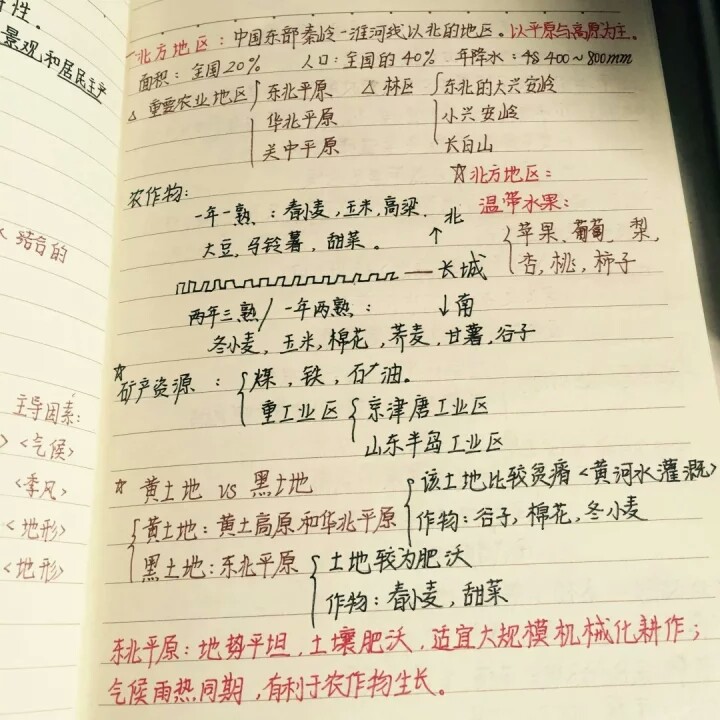 性.
景观和居民主
结合的
主导因素:
<气候>
<季风>
<地形>
<地形>
一北方地区:中国东部秦岭-淮河线以北的地区。以平原与高原为主.
面积:全国20% 人口:全国的40% 年降水:48 400~800mm
△重要农业地区 { 东北平原 △林区 { 东北的大兴安岭
华北平原 小兴安岭
关中平原 长白山
☆北方地区:
农作物: 温带水果:
一年一熟:春小麦,玉米,高粱. 北 { 苹果、葡萄、梨,
大豆,马铃薯,甜菜。 ↑ 杏,桃,柿子
— 长城
两年三熟/一年两熟: ↓南
冬小麦,玉米,棉花,荞麦,甘薯,谷子
☆矿产资源:{ 煤,铁,石油。
重工业区 { 京津唐工业区
山东半岛工业区
☆ 黄土地 vs 黑土地 { 该土地比较贫瘠<黄河水灌溉>
{ 黄土地:黄土高原和华北平原 作物:谷子,棉花,冬小麦
黑土地:东北平原 { 土地较为肥沃
作物:春小麦,甜菜
东北平原:地势平坦,土壤肥沃,适宜大规模机械化耕作;
气候雨热同期,有利于农作物生长。